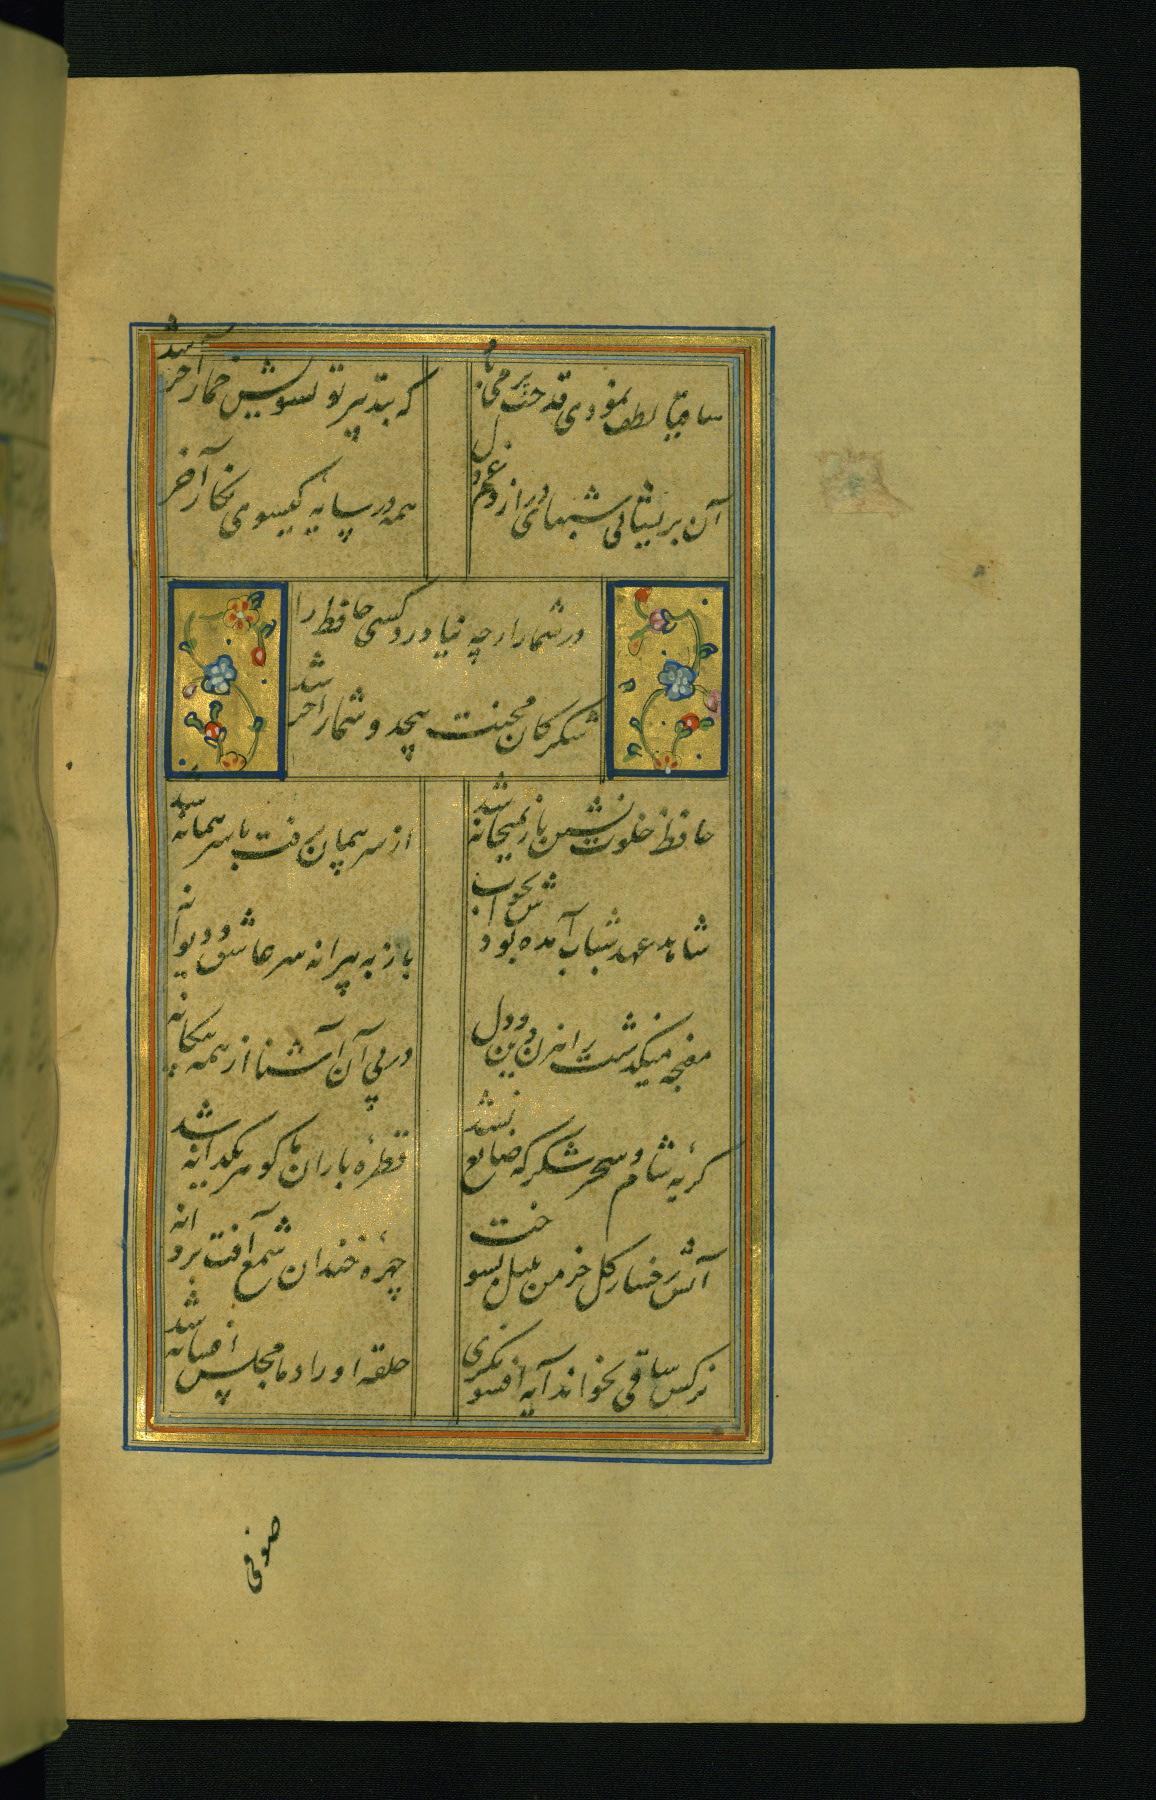 ساقیا لطف نمودی قدحت پر می باد
که بتدبیر تو تسویش خمار آخر شد
آن پریشانی شبهای دراز و غم دل
همه در سایه کیسوی نکار آخر
در شمار ارچه نیاورد کسی حافظ را
شکر کان محنت بیحد و شمار آخر شد
حافظ خلوت نشین باز بمیخانه شد
از سر پیمان برفت باسر پیمانه شد
شاهد عهد شباب آمده بودش بخواب
باز به پیرانه سر عاشق و دیوانه
مغبچه میکذشت راهزن دین و دل
در پی آن آشنا از همه بیکانه
کریه شام و سحر شکر که ضایع نشد
قطره باران ما کوهر یکدانه شد
آتش رخسار کل خرمن بلبل بسوخت
چهره خندان شمع آفت پروانه
نرکس ساقی بخواند آیه افسونکری
حلقه اوراد ما مجلس افسانه شد
صوفی